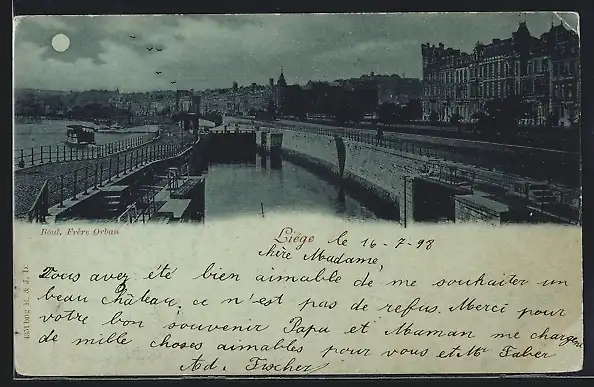 Boul. Frère Orban
Liége le 16-7-98
chère Madame,
Vous avez été bien aimable de me souhaiter un
beau château, ce n'est pas de refus. Merci pour
votre bon souvenir Papa et Maman me chargent
de mille choses aimables pour vous et Mr Faber
Ad. Fischer